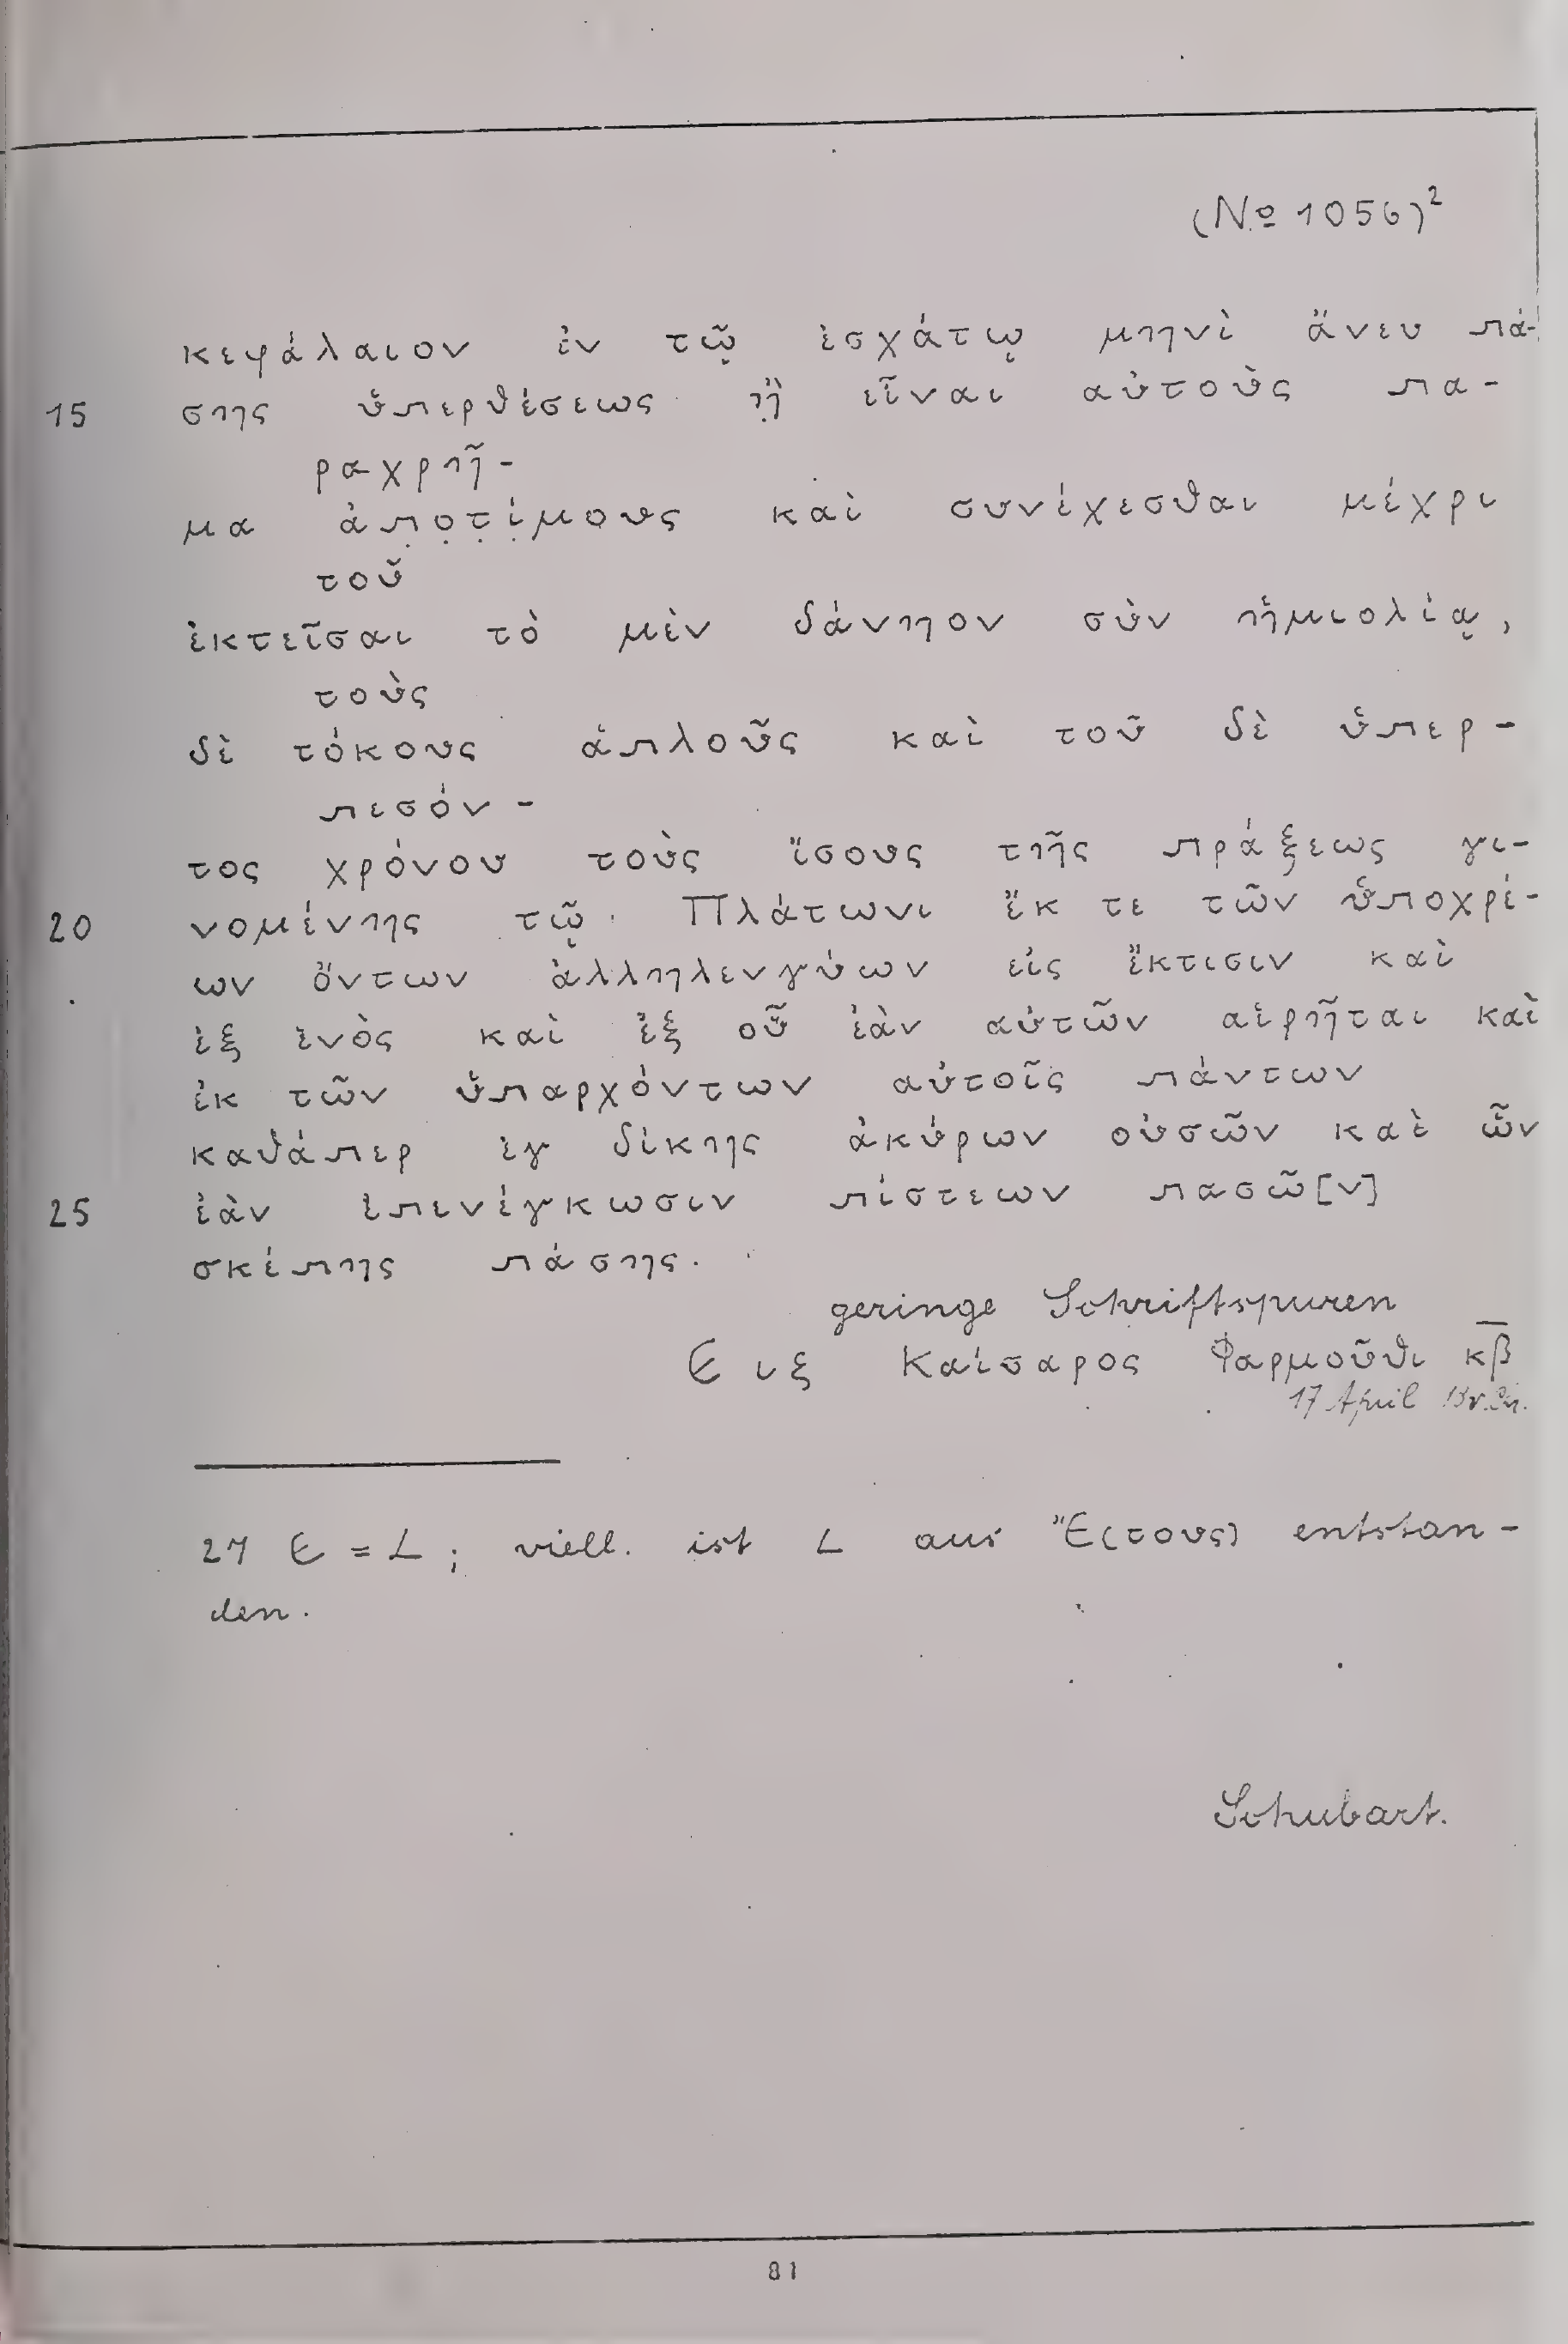 (№ 1056)²
κεφάλαιον ἐν τῷ ἐσχάτῳ μηνὶ ἄνευ πά-
15 σης ὑπερθέσεως ἢ̣ εἶναι αὐτοὺς πα-
ραχρῆ-
μα ἀπ̣ο̣τ̣ί̣μ̣ους καὶ συνέχεσθαι μέχρι
τοῦ
ἐκτεῖσαι τὸ μὲν δάνηον σὺν ἡμιολίᾳ,
τοὺς
δὲ τόκους ἁπλοῦς καὶ τοῦ δὲ ὑπερ-
πεσόν-
τος χρόνου τοὺς ἴσους τῆς πράξεως γι-
20 νομένης τῷ Πλάτωνι ἔκ τε τῶν ὑποχρέ-
ων ὄντων ἀλληλενγύων εἰς ἔκτισιν καὶ
ἐξ ἑνὸς καὶ ἐξ οὗ ἐὰν αὐτῶν αἱρῆται καὶ
ἐκ τῶν ὑπαρχόντων αὐτοῖς πάντων
καθάπερ ἐγ δίκης ἀκύρων οὐσῶν καὶ ὧν
25 ἐὰν ἐπενέγκωσιν πίστεων πασῶ[ν]
σκέπης πάσης.
geringe Schriftspuren
Є ιξ Καίσαρος Φαρμοῦθι κ̅β̅
17 April 13 v. Chr.
27 Є = L; viell. ist L aus "Є(τους) entstan-
den.
Schubart.
81